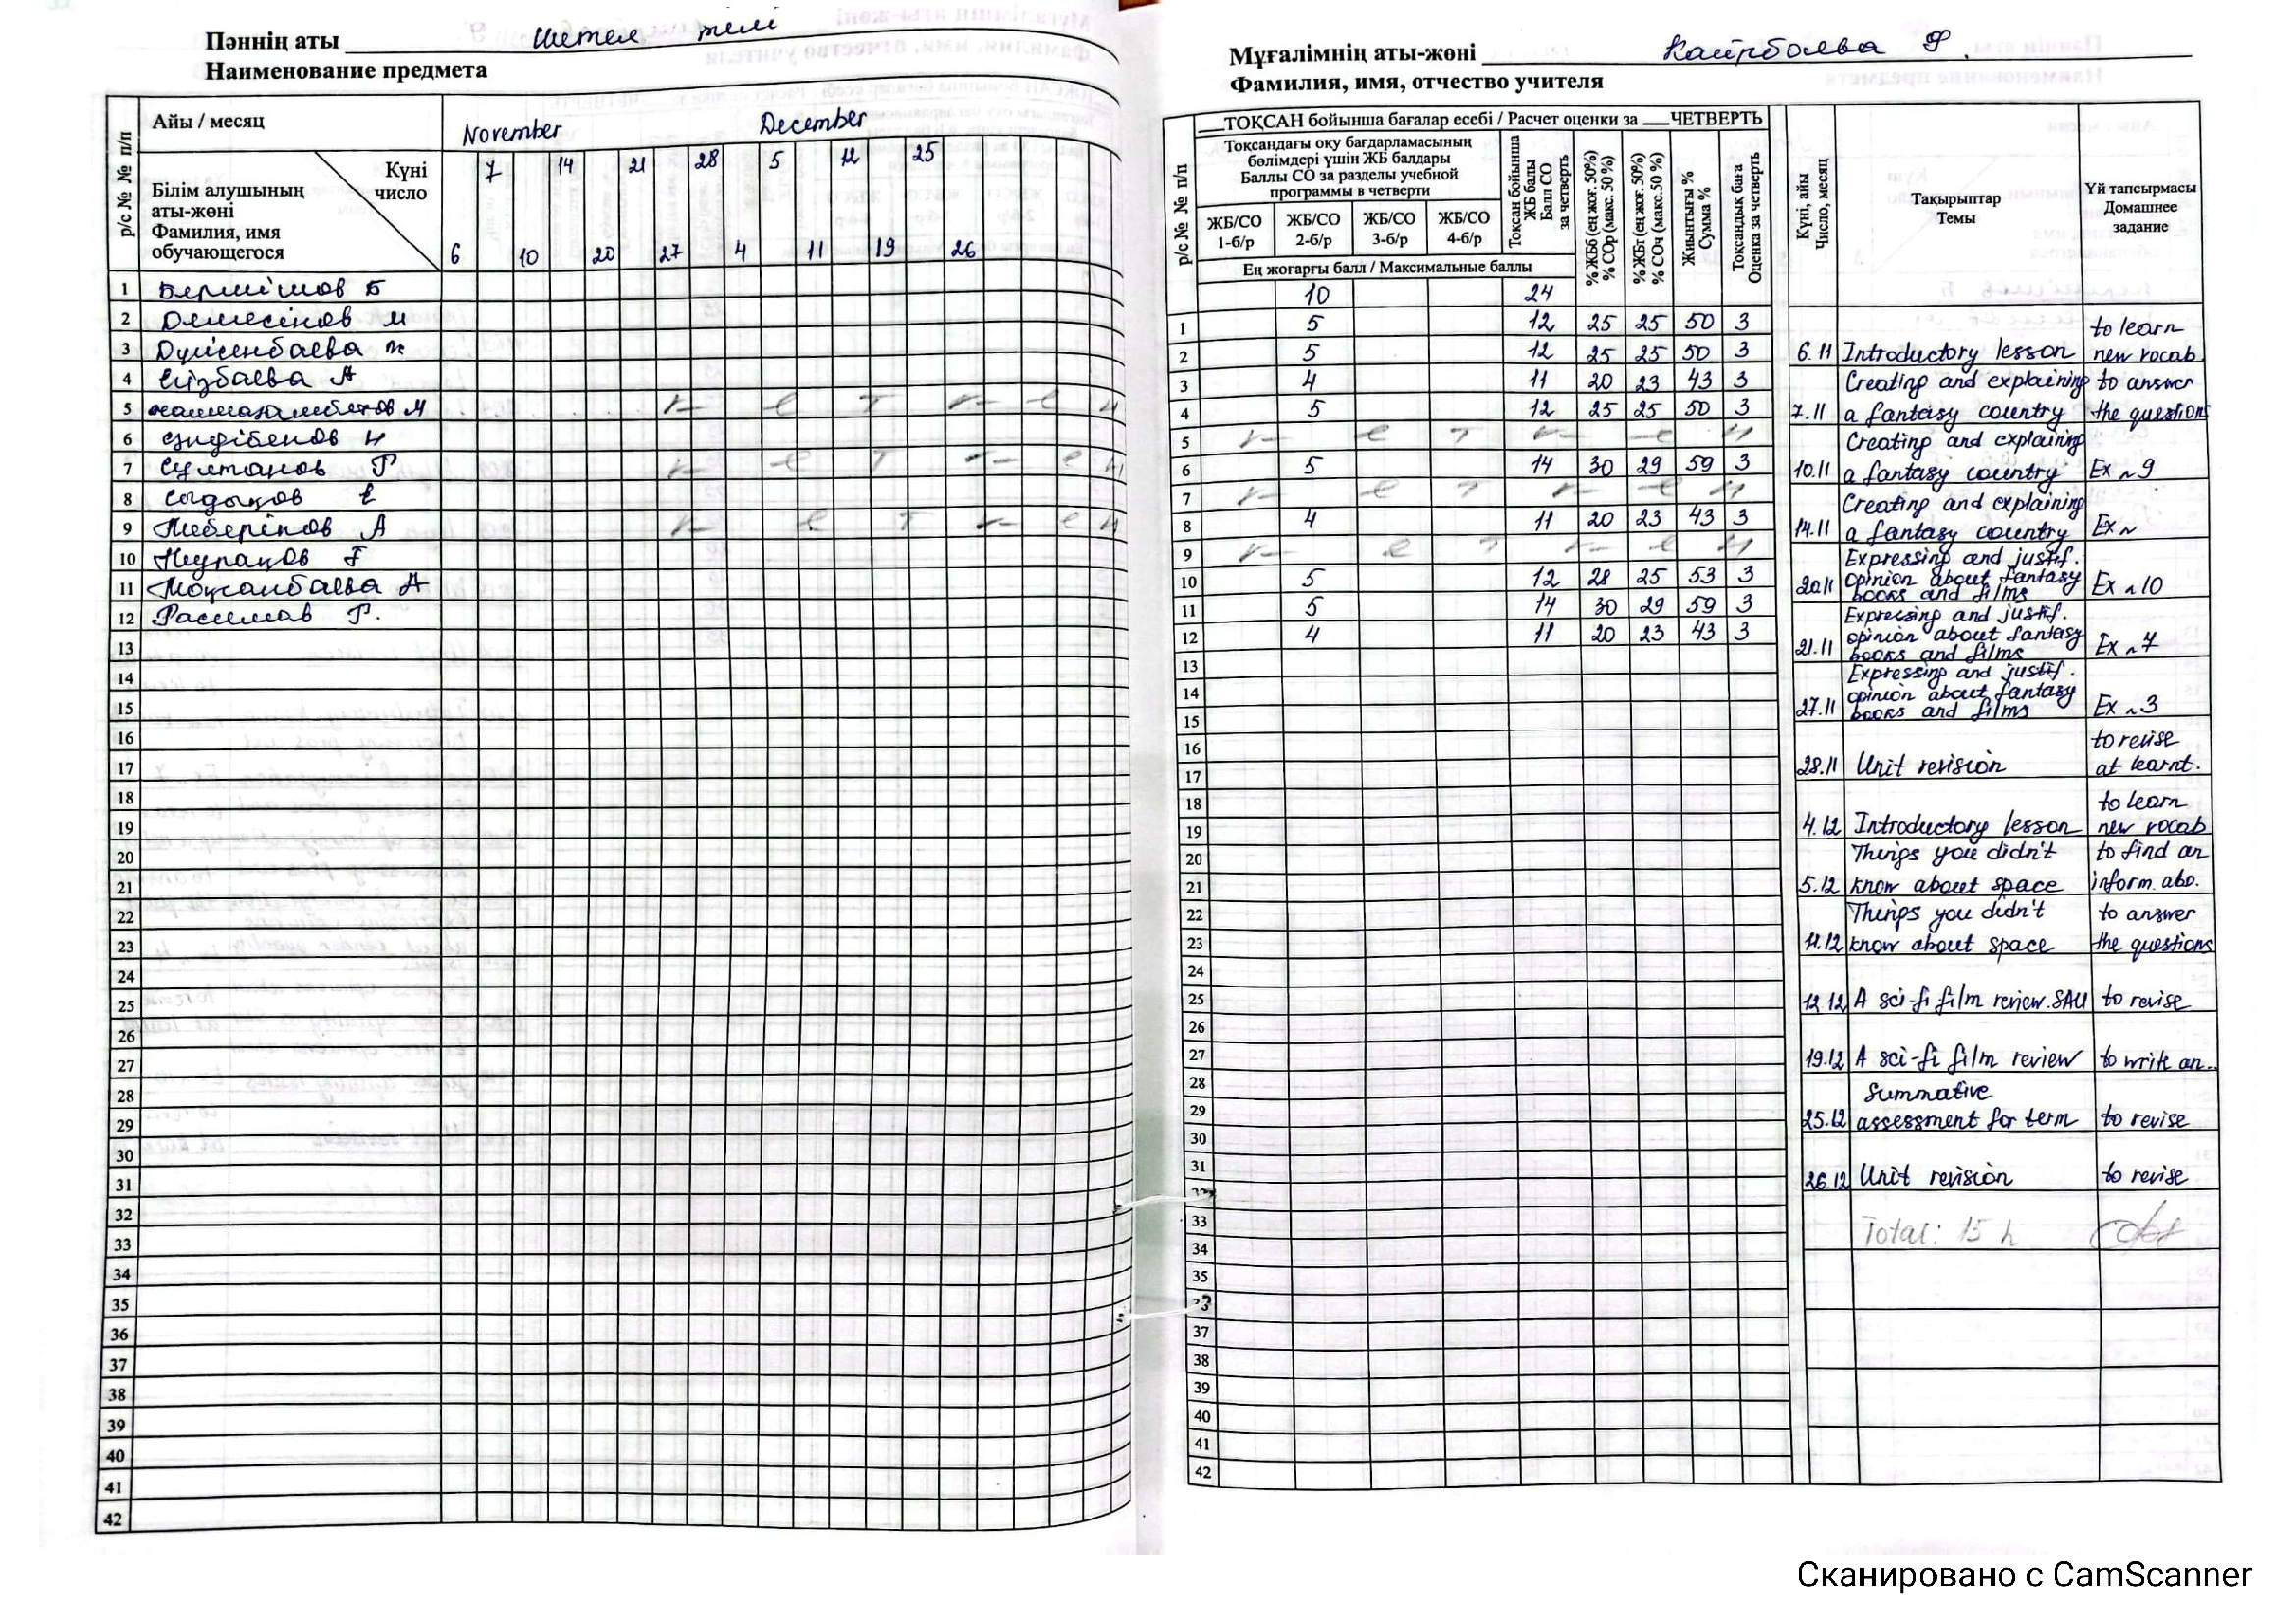 Пәннің аты Шетел тілі
Наименование предмета
р/с № № № п/п
Айы / месяц
November December
Күні
число
Білім алушының
аты-жөні
Фамилия, имя
обучающегося
7 14 21 28 5 12 25
6 10 20 27 4 11 19 26
1 Б
2 М
3 Дүйсенбаева Ж
4 А
5 М
6 Н
7 Султанов Р
8 Сыдықов Е
9 А
10 Г
11 А
12 Р.
13
14
15
16
17
18
19
20
21
22
23
24
25
26
27
28
29
30
31
32
33
34
35
36
37
38
39
40
41
42
Мұғалімнің аты-жөні Каирбаева Ф.
Фамилия, имя, отчество учителя
р/с № № № п/п
___ТОҚСАН бойынша бағалар есебі / Расчет оценки за ___ЧЕТВЕРТЬ
Тоқсандағы оқу бағдарламасының
бөлімдері үшін ЖБ балдары
Баллы СО за разделы учебной
программы в четверти
ЖБ/СО 1-б/р
ЖБ/СО 2-б/р
ЖБ/СО 3-б/р
ЖБ/СО 4-б/р
Тоқсан бойынша
ЖБ балы
Балл СО
за четверть
%ЖБб (ең жоғ. 50%)
% СОр (макс. 50 %)
%ЖБт (ең жоғ. 50%)
% СОч (макс. 50 %)
Жиынтығы %
Сумма %
Тоқсандық баға
Оценка за четверть
Ең жоғарғы балл / Максимальные баллы
10 24
1 5 12 25 25 50 3
2 5 12 25 25 50 3
3 4 11 20 23 43 3
4 5 12 25 25 50 3
5
6 5 14 30 29 59 3
7
8 4 11 20 23 43 3
9
10 5 12 28 25 53 3
11 5 14 30 29 59 3
12 4 11 20 23 43 3
13
14
15
16
17
18
19
20
21
22
23
24
25
26
27
28
29
30
31
33
34
35
37
38
39
40
41
42
Күні, айы
Число, месяц
Тақырыптар
Темы
Үй тапсырмасы
Домашнее
задание
to learn
6.11 Introductory lesson new vocab
Creating and explaining to answer
7.11 a fantasy country the questions
Creating and explaining
10.11 a fantasy country Ex ~9
Creating and explaining
14.11 a fantasy country Ex ~
Expressing and justif.
20.11 opinion about fantasy Ex ~10
books and films
Expressing and justif.
21.11 opinion about fantasy Ex ~7
books and films
Expressing and justif.
27.11 opinion about fantasy Ex ~3
books and films
to revise
28.11 Unit revision at learnt.
to learn
4.12 Introductory lesson new vocab
Things you didn't to find an
5.12 know about space inform. abo.
Things you didn't to answer
11.12 know about space the questions
12.12 A sci-fi film review. SAU to revise
19.12 A sci-fi film review to write an..
Summative
25.12 assessment for term to revise
26.12 Unit revision to revise
Total: 15 h
Сканировано с CamScanner